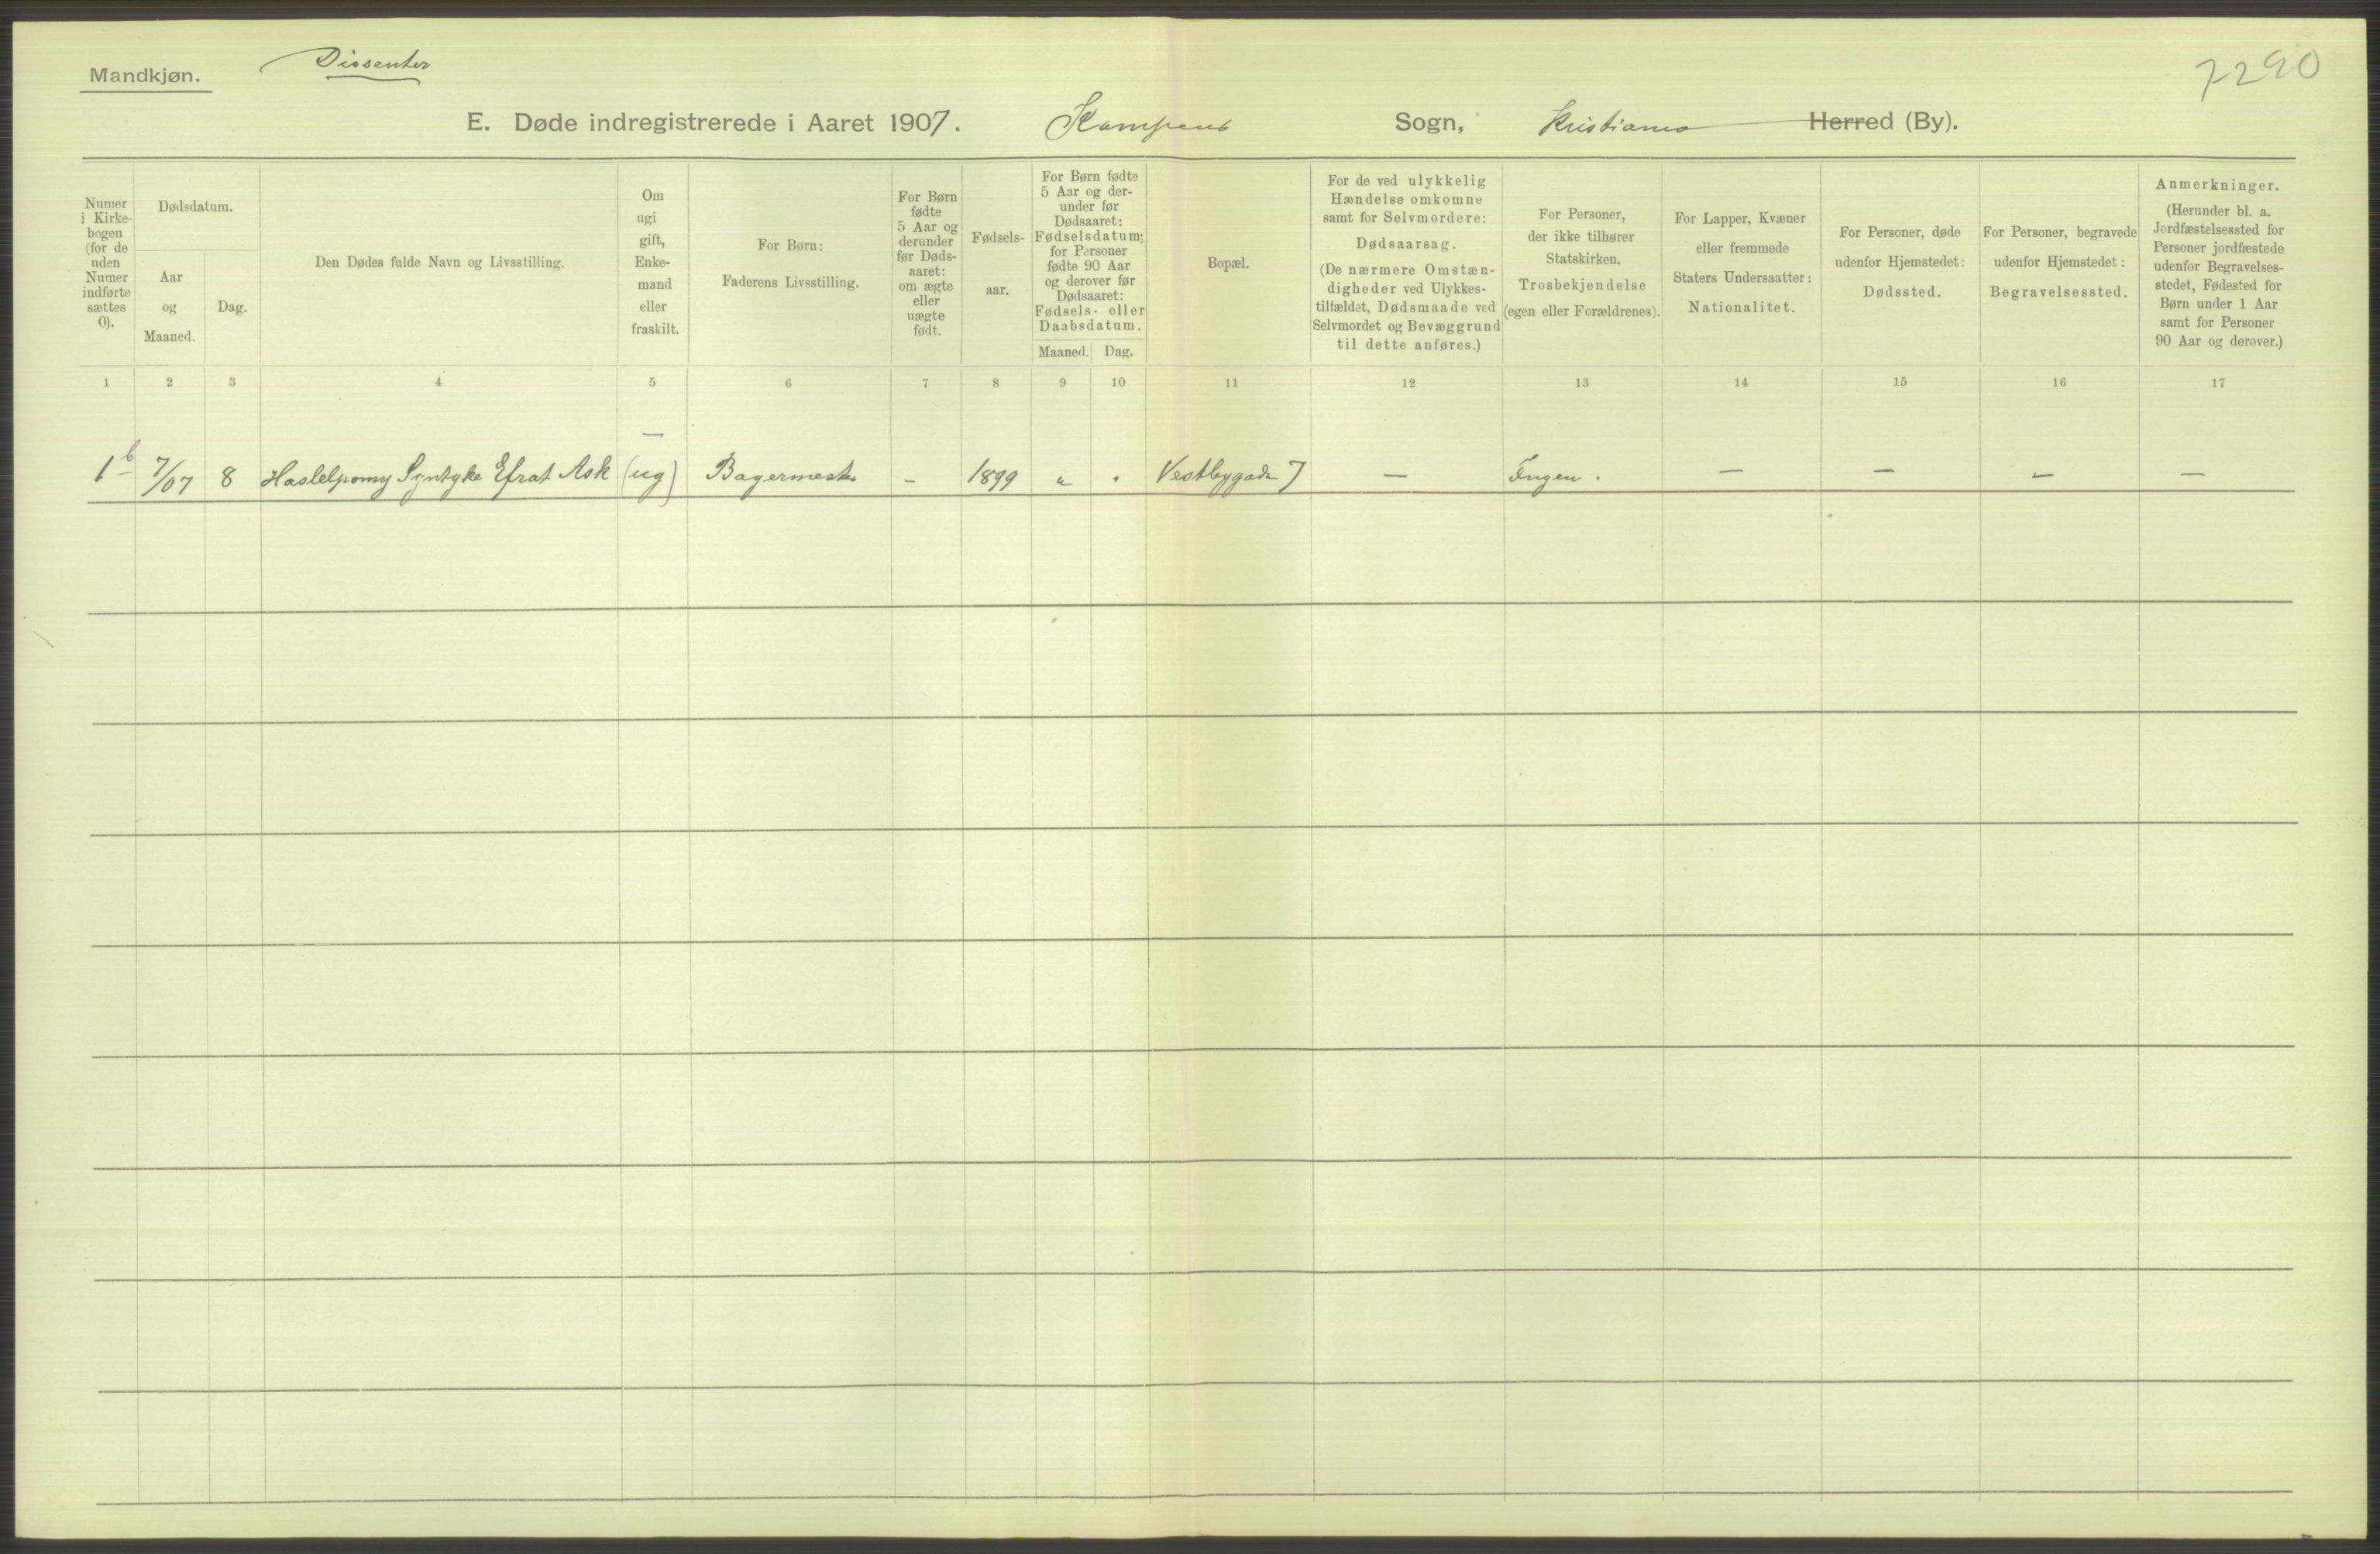 Mandkjøn.
Dissenter
7290
E. Døde indregistrerede i Aaret 1907. Kampens Sogn, Kristiania Herred (By).
Numer i Kirkebogen (for de uden Numer indførte sættes 0).
Dødsdatum.
Aar og Maaned.
Dag.
Den Dødes fulde Navn og Livsstilling.
Om ugi gift, Enkemand eller fraskilt.
For Børn: Faderens Livsstilling.
For Børn fødte 5 Aar og derunder før Dødsaaret: om ægte eller uægte født.
Fødselsaar.
For Børn fødte 5 Aar og derunder før Dødsaaret: Fødselsdatum; for Personer fødte 90 Aar og derover før Dødsaaret: Fødsels- eller Daabsdatum.
Maaned. Dag.
Bopæl.
For de ved ulykkelig Hændelse omkomne samt for Selvmordere: Dødsaarsag. (De nærmere Omstændigheder ved Ulykkestilfældet, Dødsmaade ved Selvmordet og Bevæggrund til dette anføres.)
For Personer, der ikke tilhører Statskirken. Trosbekjendelse (egen eller Forældrenes).
For Lapper, Kvæner eller fremmede Staters Undersaatter: Nationalitet.
For Personer, døde udenfor Hjemstedet: Dødssted.
For Personer, begravede udenfor Hjemstedet: Begravelsessted.
Anmerkninger. (Herunder bl. a. Jordfæstelsessted for Personer jordfæstede udenfor Begravelsesstedet, Fødested for Børn under 1 Aar samt for Personer 90 Aar og derover.)
1 2 3 4 5 6 7 8 9 10 11 12 13 14 15 16 17
1 b 7/07 8 Syntyke Efrat Ask — (ug) Bagermester — 1899 " " Vestbygade 7 — Ingen. — — — —